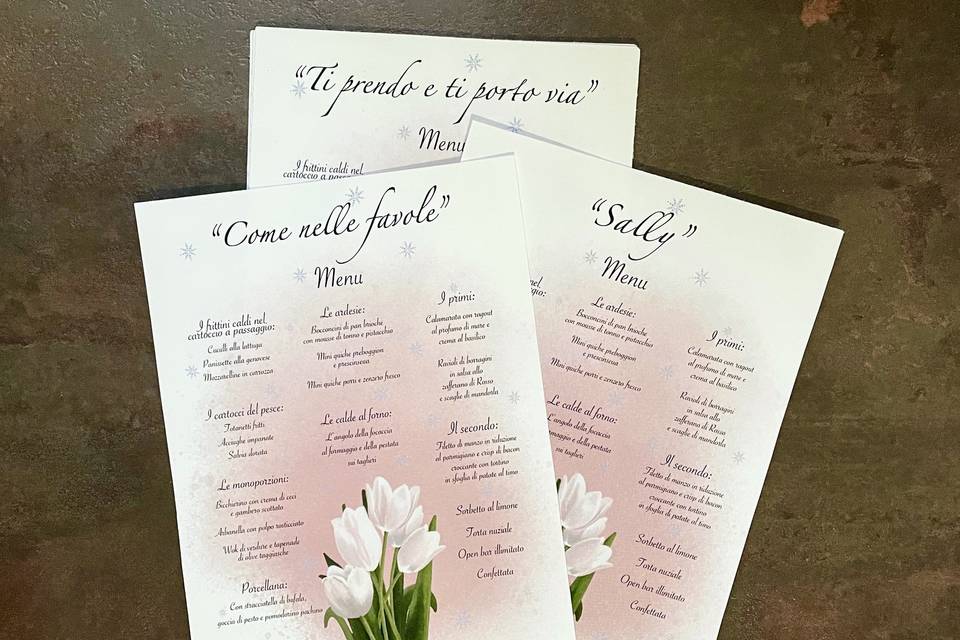 “Ti prendo e ti porto via”
Menu
I frittini caldi nel
“Come nelle favole”
Menu
I frittini caldi nel
cartoccio a passaggio:
Cuculli alla lattuga
Panissette alla genovese
Mozzarelline in carrozza
I cartocci del pesce:
Totanetti fritti
Acciughe impanate
Salvia dorata
Le monoporzioni:
Bicchierino con crema di ceci
e gambero scottato
Arbanella con polpo rosticciato
Wok di verdure e tapenade
di olive taggiasche
Porcellana:
Con stracciatella di bufala,
goccia di pesto e pomodorino pachino
Le ardesie:
Bocconcini di pan brioche
con mousse di tonno e pistacchio
Mini quiche preboggion
e prescinseua
Mini quiche porri e zenzero fresco
Le calde al forno:
L'angolo della focaccia
al formaggio e della pestata
sui taglieri
I primi:
Calamarata con ragout
al profumo di mare e
crema al basilico
Ravioli di borragini
in salsa allo
zafferano di Rosso
e scaglie di mandorla
Il secondo:
Filetto di manzo in riduzione
al parmigiano e crisp di bacon
croccante con tortino
in sfoglia di patate al timo
Sorbetto al limone
Torta nuziale
Open bar illimitato
Confettata
“Sally”
Menu
Le ardesie:
Bocconcini di pan brioche
con mousse di tonno e pistacchio
Mini quiche preboggion
e prescinseua
Mini quiche porri e zenzero fresco
Le calde al forno:
L'angolo della focaccia
formaggio e della pestata
sui taglieri
I primi:
Calamarata con ragout
al profumo di mare e
crema al basilico
Ravioli di borragini
in salsa allo
zafferano di Rosso
e scaglie di mandorla
Il secondo:
Filetto di manzo in riduzione
al parmigiano e crisp di bacon
croccante con tortino
in sfoglia di patate al timo
Sorbetto al limone
Torta nuziale
Open bar illimitato
Confettata